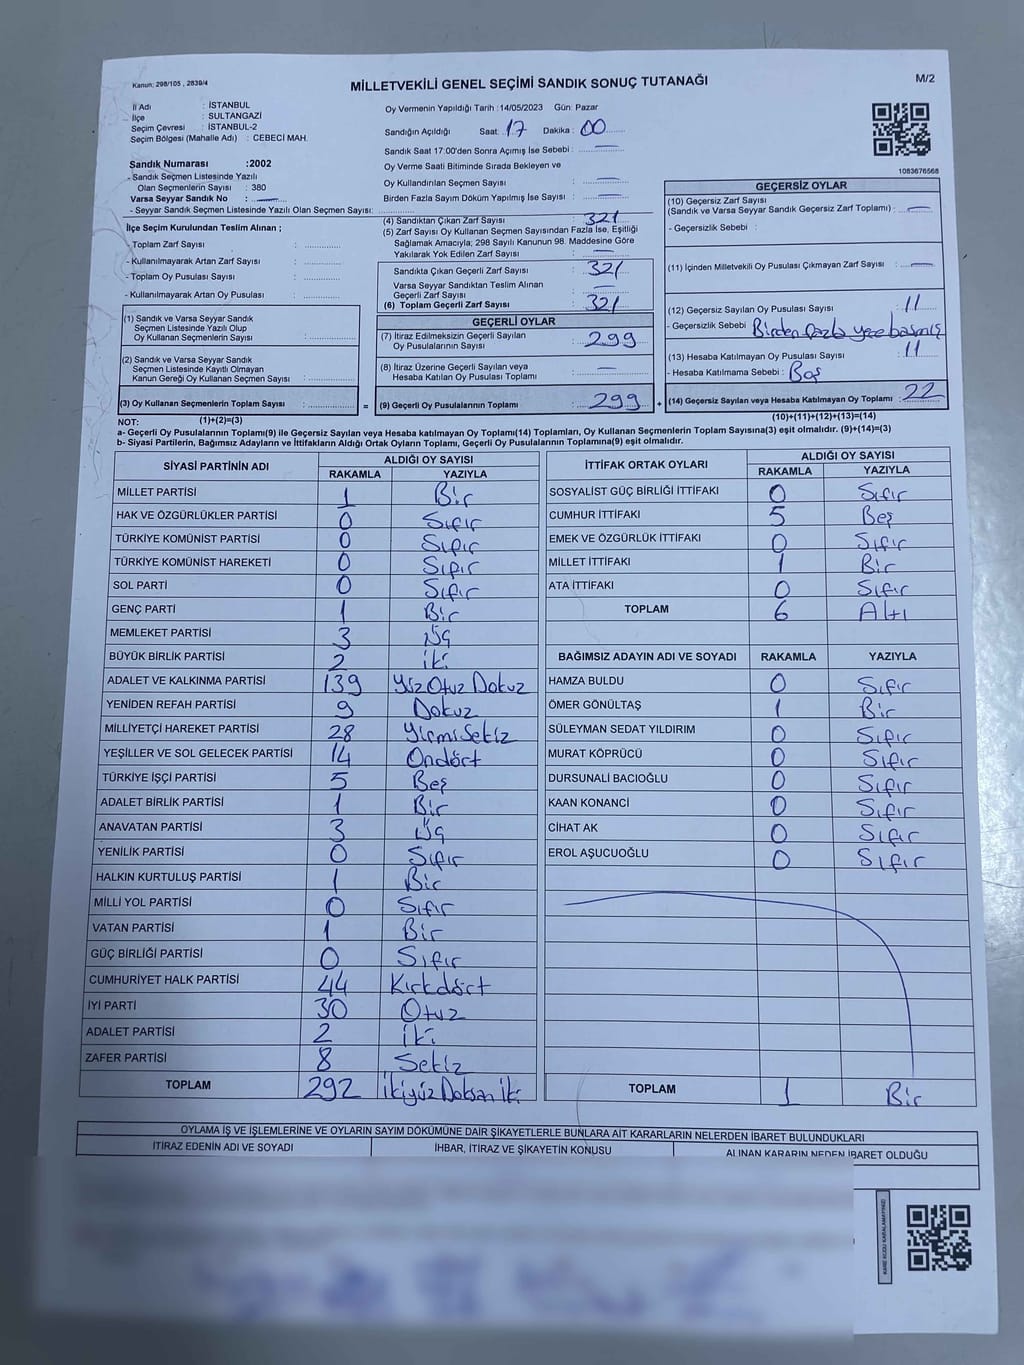 Kanun; 298/105 , 2839/4
MİLLETVEKİLİ GENEL SEÇİMİ SANDIK SONUÇ TUTANAĞI
M/2
İl Adı : İSTANBUL
İlçe : SULTANGAZİ
Seçim Çevresi : İSTANBUL-2
Seçim Bölgesi (Mahalle Adı) : CEBECİ MAH.
Sandık Numarası :2002
- Sandık Seçmen Listesinde Yazılı
Olan Seçmenlerin Sayısı : 380
Varsa Seyyar Sandık No : —
- Seyyar Sandık Seçmen Listesinde Yazılı Olan Seçmen Sayısı:
İlçe Seçim Kurulundan Teslim Alınan ;
- Toplam Zarf Sayısı :
- Kullanılmayarak Artan Zarf Sayısı :
- Toplam Oy Pusulası Sayısı :
- Kullanılmayarak Artan Oy Pusulası :
(1) Sandık ve Varsa Seyyar Sandık
Seçmen Listesinde Yazılı Olup
Oy Kullanan Seçmenlerin Sayısı :
(2) Sandık ve Varsa Seyyar Sandık
Seçmen Listesinde Kayıtlı Olmayan
Kanun Gereği Oy Kullanan Seçmen Sayısı :
(3) Oy Kullanan Seçmenlerin Toplam Sayısı : =
(1)+(2)=(3)
Oy Vermenin Yapıldığı Tarih :14/05/2023 Gün: Pazar
Sandığın Açıldığı Saat: 17 Dakika : 00
Sandık Saat 17:00'den Sonra Açımış İse Sebebi : —
Oy Verme Saati Bitiminde Sırada Bekleyen ve
Oy Kullandırılan Seçmen Sayısı : —
Birden Fazla Sayım Döküm Yapılmış İse Sayısı : —
(4) Sandıktan Çıkan Zarf Sayısı : 321
(5) Zarf Sayısı Oy Kullanan Seçmen Sayısından Fazla İse, Eşitliği
Sağlamak Amacıyla; 298 Sayılı Kanunun 98. Maddesine Göre
Yakılarak Yok Edilen Zarf Sayısı : —
Sandıkta Çıkan Geçerli Zarf Sayısı : 321
Varsa Seyyar Sandıktan Teslim Alınan
Geçerli Zarf Sayısı : —
(6) Toplam Geçerli Zarf Sayısı : 321
GEÇERLİ OYLAR
(7) İtiraz Edilmeksizin Geçerli Sayılan
Oy Pusulalarının Sayısı : 299
(8) İtiraz Üzerine Geçerli Sayılan veya
Hesaba Katılan Oy Pusulası Toplamı : —
(9) Geçerli Oy Pusulalarının Toplamı : 299 +
1083676568
GEÇERSİZ OYLAR
(10) Geçersiz Zarf Sayısı
(Sandık ve Varsa Seyyar Sandık Geçersiz Zarf Toplamı) : —
- Geçersizlik Sebebi :
(11) İçinden Milletvekili Oy Pusulası Çıkmayan Zarf Sayısı : —
(12) Geçersiz Sayılan Oy Pusulası Sayısı : 11
- Geçersizlik Sebebi : Birden fazla yere basmış
(13) Hesaba Katılmayan Oy Pusulası Sayısı : 11
- Hesaba Katılmama Sebebi : Boş
(14) Geçersiz Sayılan veya Hesaba Katılmayan Oy Toplamı : 22
(10)+(11)+(12)+(13)=(14)
NOT:
a- Geçerli Oy Pusulalarının Toplamı(9) ile Geçersiz Sayılan veya Hesaba Katılmayan Oy Toplamı(14) Toplamları, Oy Kullanan Seçmenlerin Toplam Sayısına(3) eşit olmalıdır. (9)+(14)=(3)
b- Siyasi Partilerin, Bağımsız Adayların ve İttifakların Aldığı Ortak Oyların Toplamı, Geçerli Oy Pusulalarının Toplamına(9) eşit olmalıdır.
SİYASİ PARTİNİN ADI ALDIĞI OY SAYISI
RAKAMLA YAZIYLA
MİLLET PARTİSİ 1 Bir
HAK VE ÖZGÜRLÜKLER PARTİSİ 0 Sıfır
TÜRKİYE KOMÜNİST PARTİSİ 0 Sıfır
TÜRKİYE KOMÜNİST HAREKETİ 0 Sıfır
SOL PARTİ 0 Sıfır
GENÇ PARTİ 1 Bir
MEMLEKET PARTİSİ 3 Üç
BÜYÜK BİRLİK PARTİSİ 2 iki
ADALET VE KALKINMA PARTİSİ 139 Yüz Otuz Dokuz
YENİDEN REFAH PARTİSİ 9 Dokuz
MİLLİYETÇİ HAREKET PARTİSİ 28 YirmiSekiz
YEŞİLLER VE SOL GELECEK PARTİSİ 14 Ondört
TÜRKİYE İŞÇİ PARTİSİ 5 Beş
ADALET BİRLİK PARTİSİ 1 Bir
ANAVATAN PARTİSİ 3 Üç
YENİLİK PARTİSİ 0 Sıfır
HALKIN KURTULUŞ PARTİSİ 1 Bir
MİLLİ YOL PARTİSİ 0 Sıfır
VATAN PARTİSİ 1 Bir
GÜÇ BİRLİĞİ PARTİSİ 0 Sıfır
CUMHURİYET HALK PARTİSİ 44 Kırkdört
İYİ PARTİ 30 Otuz
ADALET PARTİSİ 2 iki
ZAFER PARTİSİ 8 Sekiz
TOPLAM 292 ikiyüz Doksan iki
İTTİFAK ORTAK OYLARI ALDIĞI OY SAYISI
RAKAMLA YAZIYLA
SOSYALİST GÜÇ BİRLİĞİ İTTİFAKI 0 Sıfır
CUMHUR İTTİFAKI 5 Beş
EMEK VE ÖZGÜRLÜK İTTİFAKI 0 Sıfır
MİLLET İTTİFAKI 1 Bir
ATA İTTİFAKI 0 Sıfır
TOPLAM 6 Altı
BAĞIMSIZ ADAYIN ADI VE SOYADI RAKAMLA YAZIYLA
HAMZA BULDU 0 Sıfır
ÖMER GÖNÜLTAŞ 1 Bir
SÜLEYMAN SEDAT YILDIRIM 0 Sıfır
MURAT KÖPRÜCÜ 0 Sıfır
DURSUNALİ BACIOĞLU 0 Sıfır
KAAN KONANCİ 0 Sıfır
CİHAT AK 0 Sıfır
EROL AŞUCUOĞLU 0 Sıfır
TOPLAM 1 Bir
OYLAMA İŞ VE İŞLEMLERİNE VE OYLARIN SAYIM DÖKÜMÜNE DAİR ŞİKAYETLERLE BUNLARA AİT KARARLARIN NELERDEN İBARET BULUNDUKLARI
İTİRAZ EDENİN ADI VE SOYADI İHBAR, İTİRAZ VE ŞİKAYETİN KONUSU ALINAN KARARIN NEDEN İBARET OLDUĞU
KARE KODU KARALAMAYINIZ!